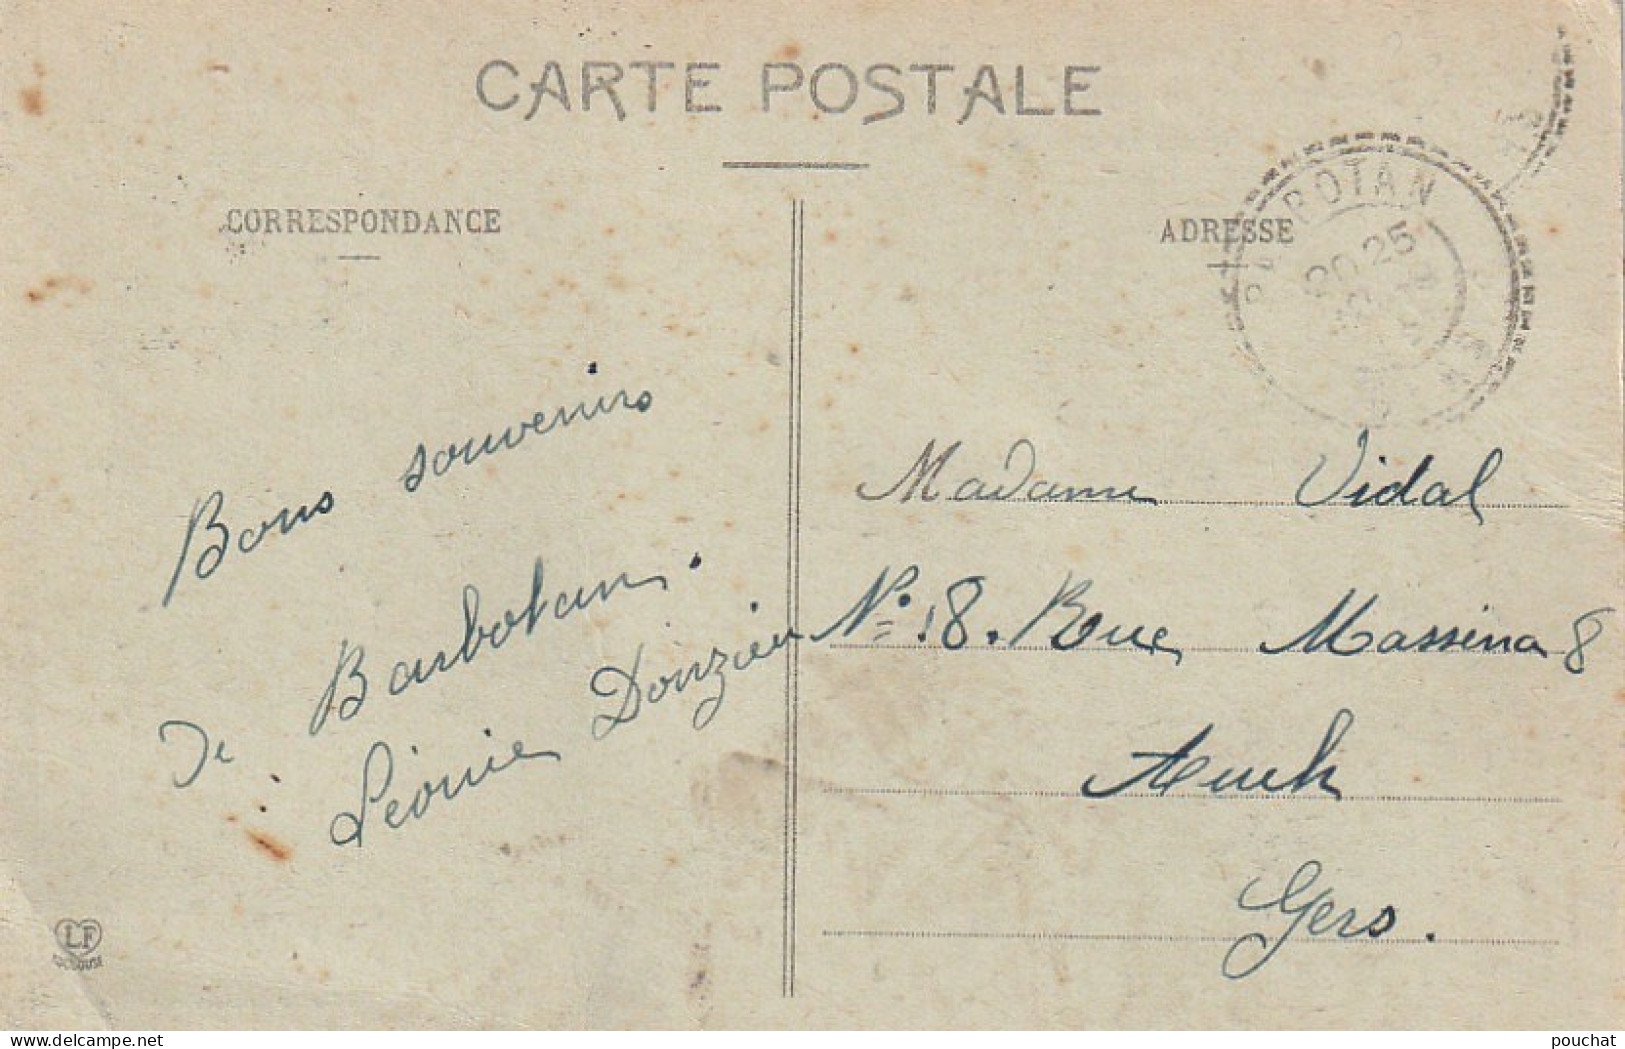 CARTE POSTALE
CORRESPONDANCE
ADRESSE
BARBOTAN
20 25
GERS
Bons souvenirs
de Barbotan.
Léonie Donzieu
Madame Vidal
Nº 18. Rue Massena 8
Auch
Gers.
LF
TOULOUSE
delcampe.net
pouchat